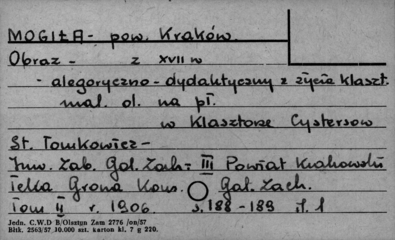 MOGIŁA - pow. Kraków.
Obraz - z XVII w
- alegoryczno - dydaktyczny z życia klaszt.
mal. ol. na pł.
w Klasztorze Cystersow
St. Tomkowicz -
Inw. Zab. Gal. Zach - III Powiat Krakowski
Teka Grona Kons. Gal. Zach.
Tom II r. 1906. s. 188 - 189 il. 1
Jedn. C.W.D B/Olsztyn Zam 2776 /on/57
Bltk. 2563/57 10.000 szt. karton kl. 7 g 220.